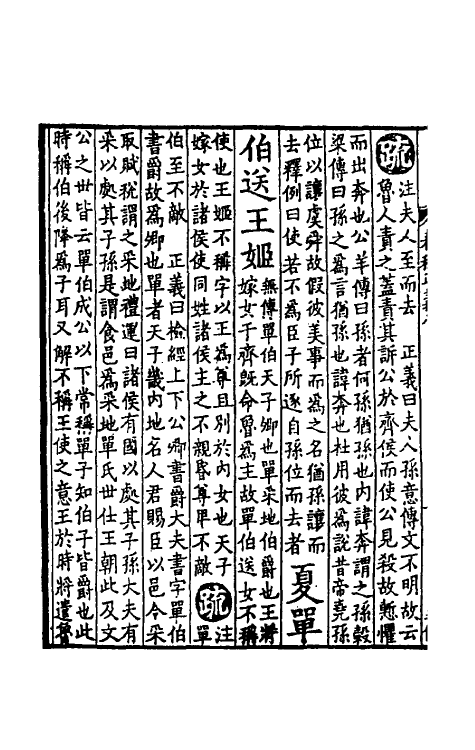 疏 注夫人至而去 正義曰夫人孫意傳文不明故云
魯人責之蓋責其訴公於齊侯而使公見殺故慙懼
而出奔也公羊傳曰孫者何孫猶孫也内諱奔謂之孫穀
梁傳曰孫之爲言猶孫也諱奔也杜用彼爲說昔帝堯孫
位以讓虞舜故假彼美事而爲之名猶孫讓而
去釋例曰使若不爲臣子所逐自孫位而去者
夏單
伯送王姬
無傳單伯天子卿也單采地伯爵也王將
嫁女于齊既命魯爲主故單伯送女不稱
使也王姬不稱字以王爲尊且別於内女也天子
嫁女於諸侯使同姓諸侯主之不親昏尊卑不敵
疏 注單
伯至不敵 正義曰檢經上下公卿書爵大夫書字單伯
書爵故爲卿也單者天子畿内地名人君賜臣以邑令采
取賦稅謂之采地禮運曰諸侯有國以處其子孫大夫有
采以處其子孫是謂食邑爲采地單氏世仕王朝此及文
公之世皆云單伯成公以下常稱單子知伯子皆爵也此
時稱伯後降爲子耳又解不稱王使之意王於時將遣魯